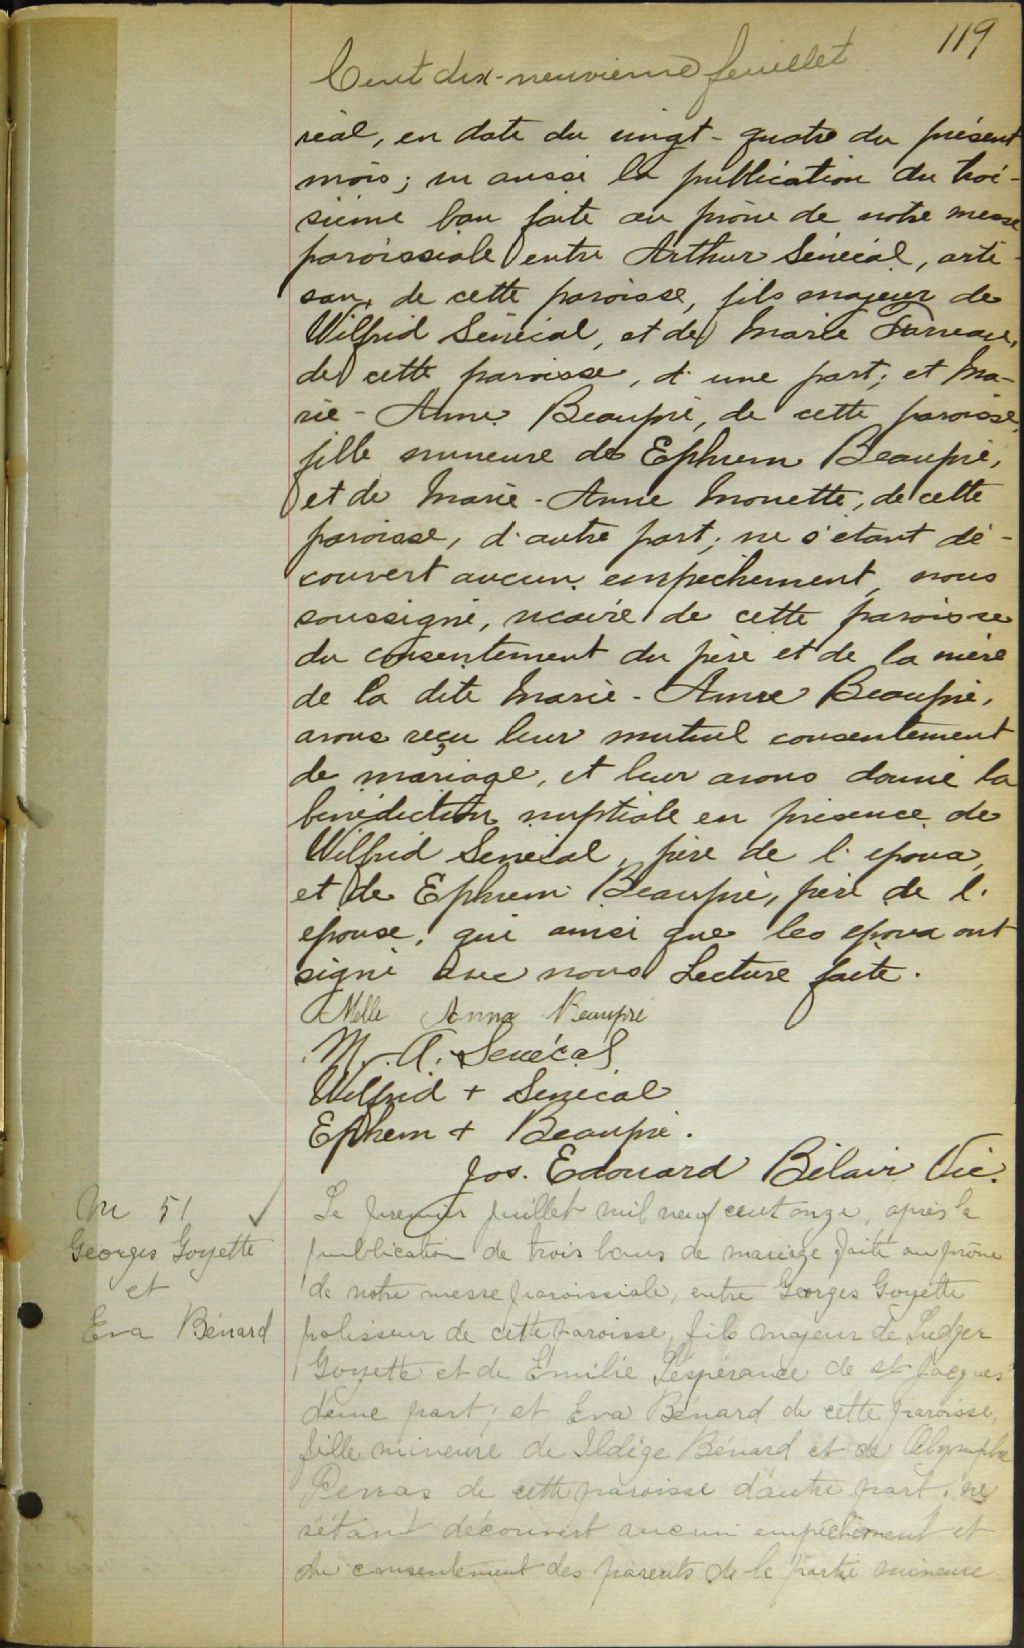 119
Cent dix-neuvième feuillet
réal, en date du vingt-quatre du présent
mois; vu aussi la publication du troi-
sième ban faite au prône de notre messe
paroissiale entre Arthur Sénécal, arti-
san, de cette paroisse, fils majeur de
Wilfrid Sénécal, et de Marie
de cette paroisse, d'une part; et Ma-
rie-Anne Beaupré, de cette paroisse,
fille mineure de Ephrem Beaupré,
et de Marie-Anne Monette, de cette
paroisse, d'autre part; ne s'étant dé-
couvert aucun empêchement, nous
soussigné, vicaire de cette paroisse
du consentement du père et de la mère
de la dite Marie-Anne Beaupré,
avons reçu leur mutuel consentement
de mariage, et leur avons donné la
bénédiction nuptiale en présence de
Wilfrid Sénécal, père de l'époux,
et de Ephrem Beaupré, père de l'
épouse, qui ainsi que les époux ont
signé avec nous Lecture faite.
Melle Anna Beaupré
M. A. Senécal
Wilfrid + Sénécal
Ephem + Beaupré.
Jos. Edouard Bélair Vic.
M 51
Georges Goyette
et
Eva Bénard
Le premier juillet mil neuf cent onze, après la
publication de trois bans de mariage faite au prône
de notre messe paroissiale, entre Georges Goyette
polisseur de cette paroisse, fils majeur de Ludger
Goyette et de Emilie Lespérance de st Jacques
d'une part; et Eva Bénard de cette paroisse,
fille mineure de Ildège Bénard et de Olymphe
Perras de cette paroisse d'autre part, ne
s'étant découvert aucun empêchement et
du consentement des parents de la partie mineure